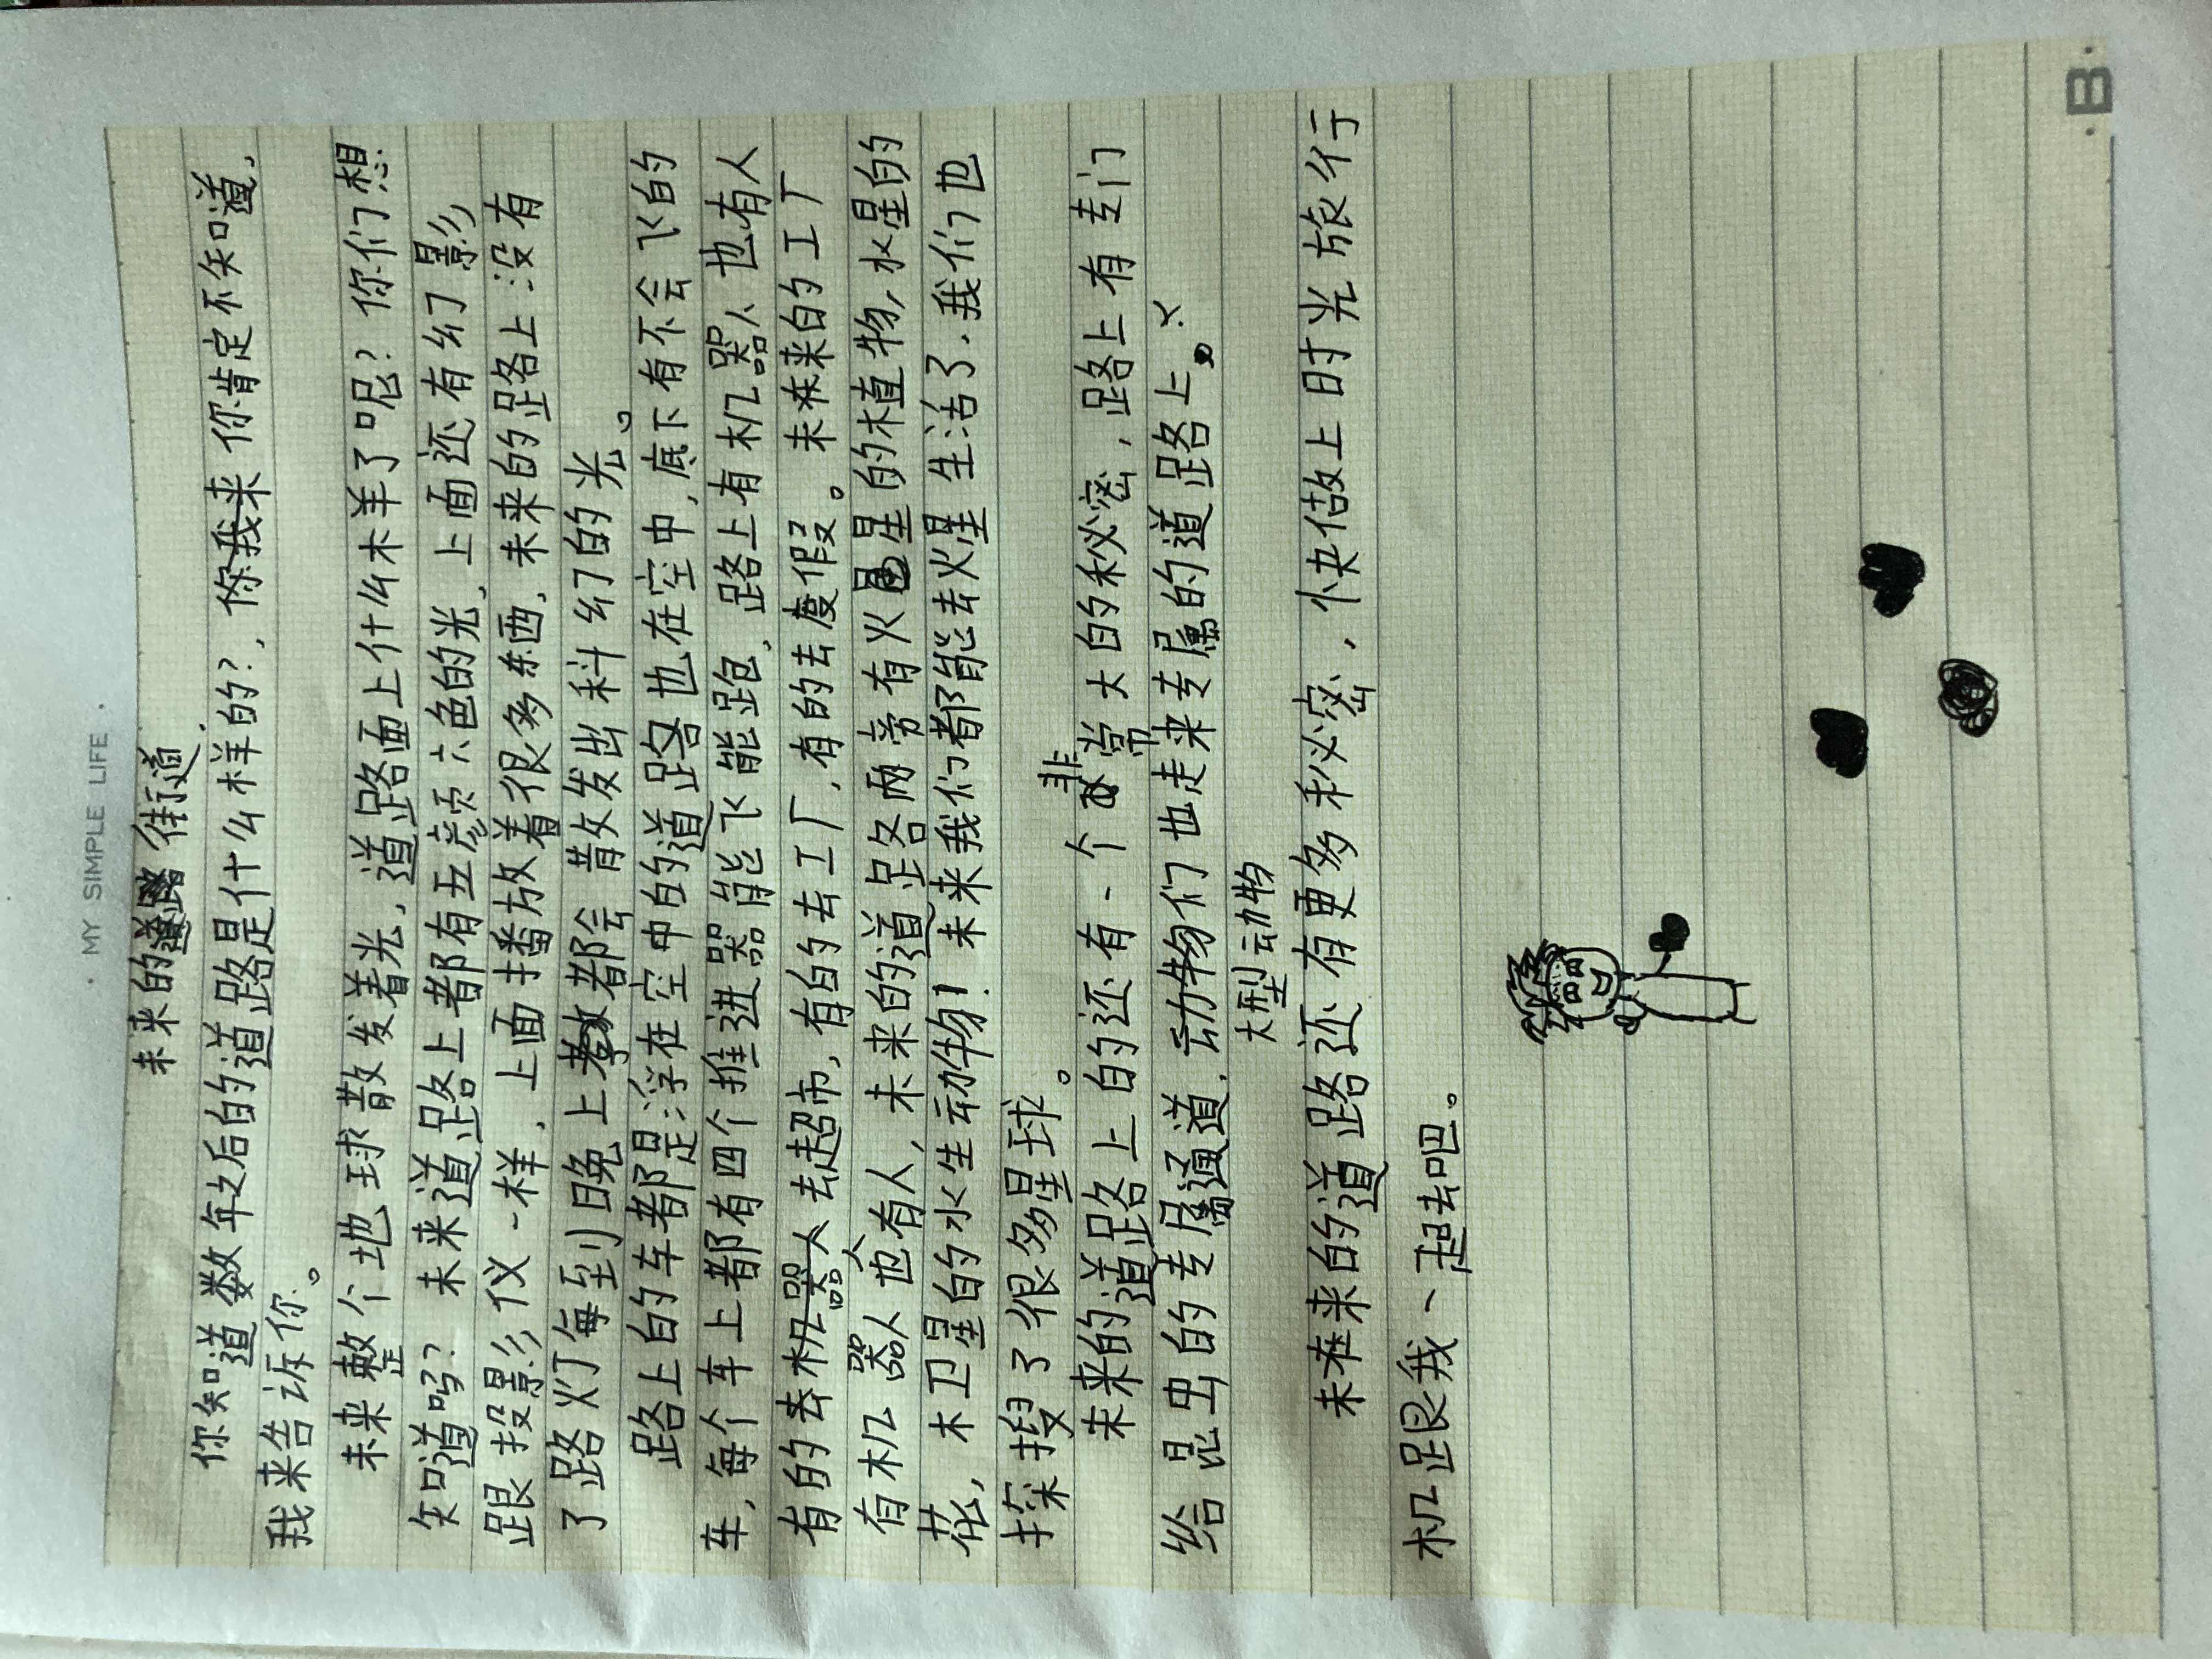 · MY SIMPLE LIFE ·
未来的道路街道
你知道数年之后的道路是什么样的?，你我来你肯定不知道，
我来告诉你。
未来整个地球散发着光，道路面上什么样了呢？你们想
知道吗？未来道路上都有五颜六色的光，上面还有幻影
跟投影仪一样，上面播放着很多东西，未来的路上没有
了路灯每到晚上都会散发出科幻的光。
路上的车都是浮在空中的道路也在空中，底下有不会飞的
车，每个车上都有四个推进器能飞能跑，路上有机器人也有人
有的去机器人去超市，有的去工厂，有的去度假。未来的工厂
有机器人也有人，未来的道路两旁有火星的植物，水星的
花，木卫星的水生动物！未来我们都能去火星生活了，我们也
探搜了很多星球。
未来的道路上的还有一个非常大的秘密，路上有专门
给昆虫的专属通道，动物们也走来专属的道路上。
大型动物
未来的道路还有更多秘密，快做上时光旅行
机跟我一起去吧。
·B·